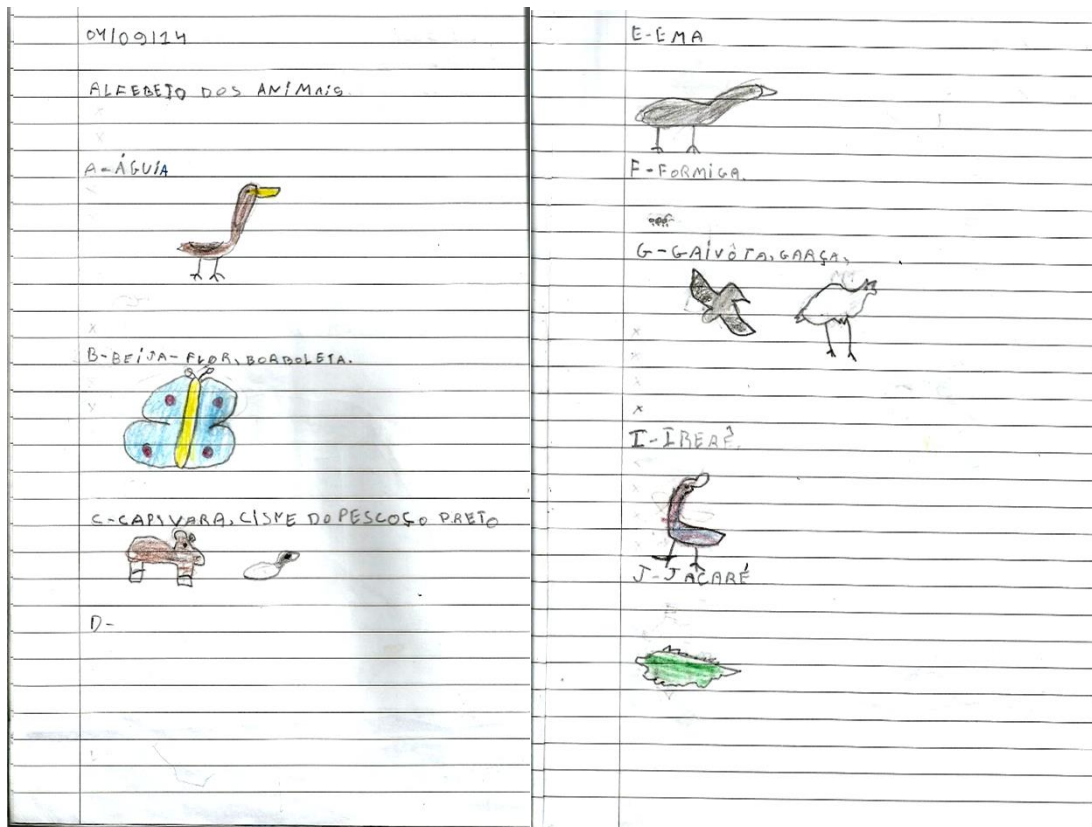 04/09/14
ALFEBETO DOS ANIMAIS.
A-ÁGUIA
B-BEIJA-FLOR, BORBOLETA.
C-CAPIVARA, CISME DO PESCOÇO PRETO
D-
E-EMA
F-FORMIGA.
G-GAIVÔTA, GARÇA,
I-IRERÊ.
J-JACARÉ